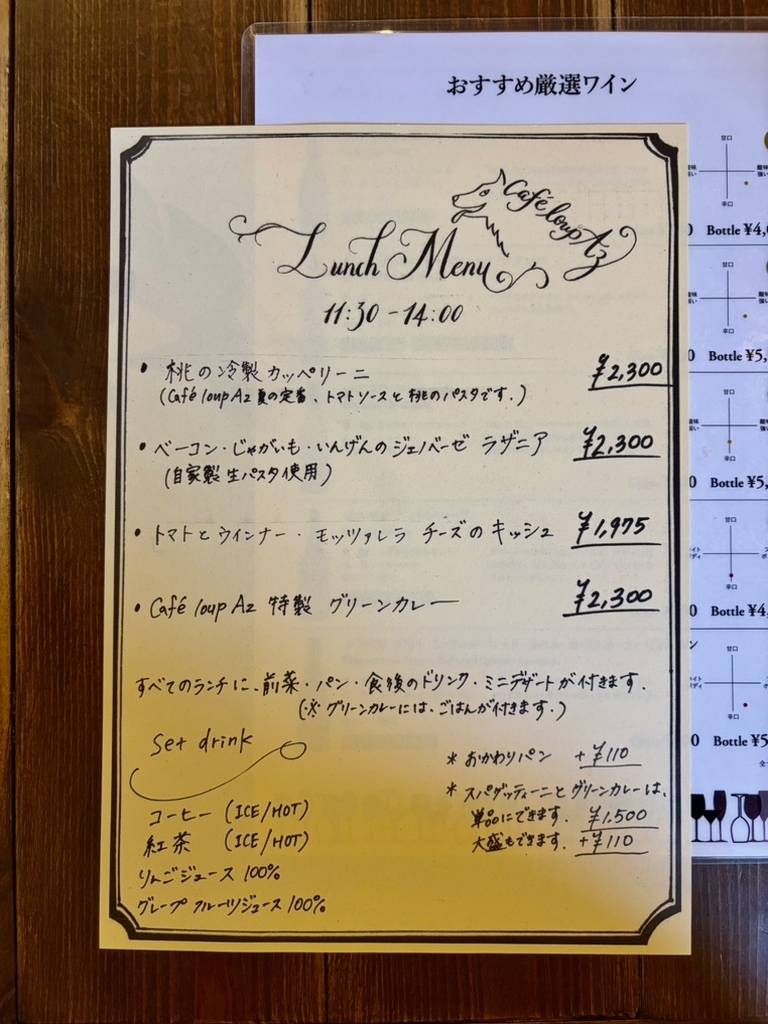 おすすめ厳選ワイン
Café loup Az
Lunch Menu
11:30 - 14:00
・桃の冷製カッペリーニ ¥2,300
(Café loup Az 夏の定番、トマトソースと桃のパスタです。)
・ベーコン・じゃがいも・いんげんのジェノベーゼ ラザニア ¥2,300
(自家製生パスタ使用)
・トマトとウインナー・モッツァレラ チーズの キッシュ ¥1,975
・Café loup Az 特製 グリーンカレー ¥2,300
すべてのランチに、前菜・パン・食後のドリンク・ミニデザートが付きます。
(※ グリーンカレーには、ごはんが付きます。)
Set drink
コーヒー (ICE/HOT)
紅茶 (ICE/HOT)
りんごジュース 100%
グレープフルーツジュース 100%
* おかわりパン +¥110
* スパゲッティーニと グリーンカレーは、
単品にできます。 ¥1,500
大盛もできます。 +¥110
甘口
辛口
Bottle ¥4,
甘口
辛口
Bottle ¥5,
甘口
辛口
Bottle ¥5,
甘口
辛口
Bottle ¥4,
甘口
辛口
Bottle ¥5